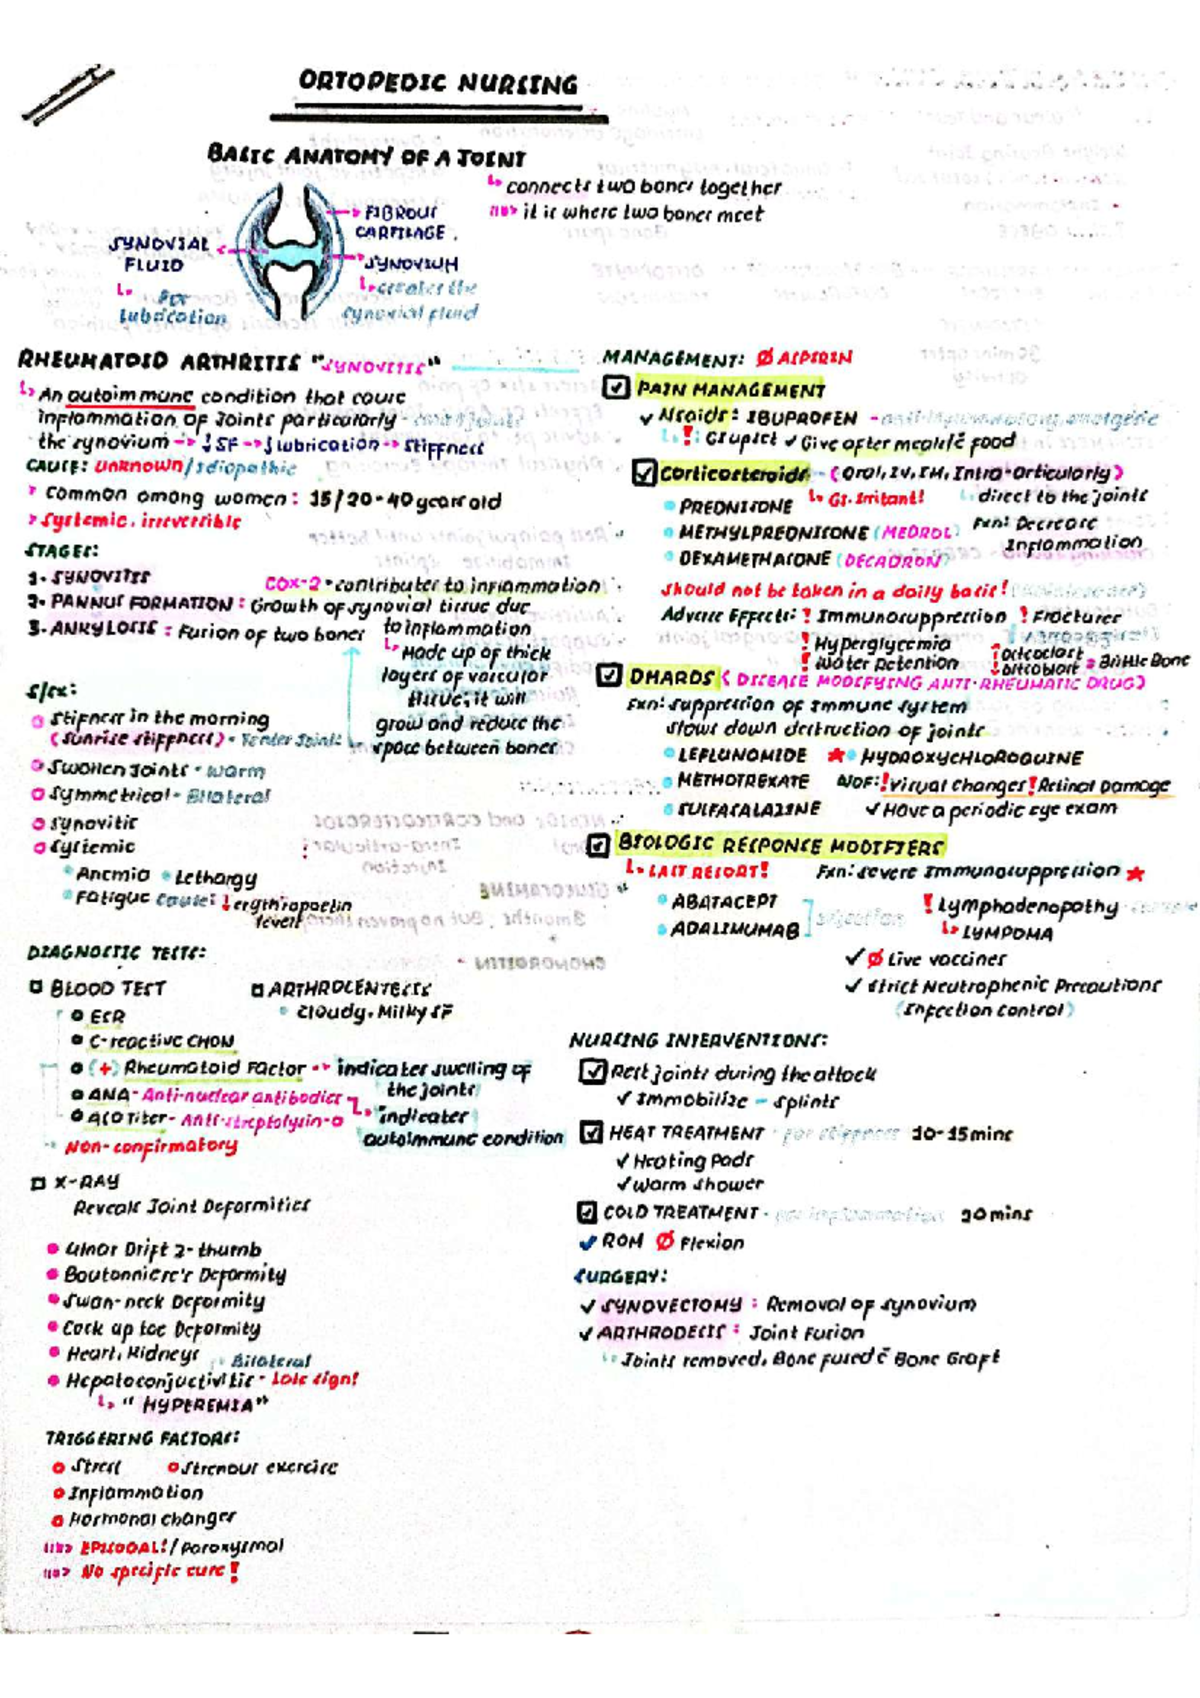 ORTOPEDIC NURSING
BASIC ANATOMY OF A JOINT
↳ connects two bones together
it is where two bones meet
FIBROUS CARTILAGE.
SYNOVIAL FLUID
↳ For lubrication
SYNOVIUM
↳ creates the synovial fluid
RHEUMATOID ARTHRITIS "SYNOVITIS"
↳ An autoimmune condition that cause
inflammation of Joints particularly -
the synovium → ↓SF → ↓lubrication → stiffness
CAUSE: unknown/idiopathic
Common among women: 15/20-40 years old
Systemic, irreversible
STAGES:
1. SYNOVITIS
COX-2 - contributes to inflammation
2. PANNUS FORMATION: Growth of synovial tissue due
to inflammation
3. ANKYLOSIS: Fusion of two bones
↳ Made up of thick
layers of vascular
tissue; it will
grow and reduce the
space between bones
S/sx:
Stifness in the morning
(sunrise stiffness) - Tender Joint
Swollen Joints - warm
Symmetrical - Bilateral
Synovitis
Systemic
Anemia
Lethargy
Fatigue cause: ↓erythropoetin
level
DIAGNOSTIC TESTS:
BLOOD TEST
ESR
C-reactive CHON
(+) Rheumatoid Factor → indicates swelling of
the joints
ANA - Anti-nuclear antibodies
ASO Titer - Anti-streptolysin-o
↳ indicates
autoimmune condition
Non-confirmatory
ARTHROCENTESIS
cloudy, Milky SF
X-RAY
Reveals Joint Deformities
Ulnar Drift 2- thumb
Boutonniere's Deformity
Swan-neck Deformity
Cock up toe Deformity
Heart, Kidneys
Bilateral
Hepatoconjuctivitis - Late sign!
↳ "HYPEREMIA"
TRIGGERING FACTORS:
Stress
Strenous exercise
Inflammation
Hormonal changes
EPISODAL!/Paroxysmal
No specific cure!
MANAGEMENT: Ø ASPIRIN
☑ PAIN MANAGEMENT
✓ Nsaids: IBUPROFEN -
↳ !: GI upset ✓ Give after meal/c̄ food
☑ Corticosteroids - (Oral, IV, IM, Intra-Articularly)
PREDNISONE
↳ GI. Irritant!
↳ direct to the joints
METHYLPREDNISONE (MEDROL)
Fxn: Decrease
Inflammation
DEXAMETHASONE (DECADRON)
Should not be taken in a daily basis!
Adverse Effects: ! Immunosuppression ! Fractures
! Hyperglycemia
! Water Retention
↑osteoclast
↓osteoblast = Brittle Bone
☑ DMARDS (DISEASE MODIFYING ANTI-RHEUMATIC DRUG)
Fxn: suppression of Immune system
slows down destruction of joints
LEFLUNOMIDE ★ HYDROXYCHLOROQUINE
METHOTREXATE WOF: ! Visual Changes ! Retinal Damage
SULFASALAZINE ✓ Have a periodic eye exam
☑ BIOLOGIC RESPONCE MODIFIERS
↳ LAST RESORT! Fxn: severe Immunosuppression ★
ABATACEPT
ADALIMUMAB
] injection
! Lymphadenopathy -
↳ LYMPOMA
✓ Ø Live vaccines
✓ Strict Neutrophenic Precautions
(Infection control)
NURSING INTERVENTIONS:
☑ Rest joints during the attack
✓ Immobilize - splints
☑ HEAT TREATMENT - for stiffness 10-15mins
✓ Heating Pads
✓ Warm shower
☑ COLD TREATMENT - for inflammation 20mins
✓ ROM Ø Flexion
SURGERY:
✓ SYNOVECTOMY: Removal of synovium
✓ ARTHRODESIS: Joint Fusion
Joints removed, Bone fused c̄ Bone Graft